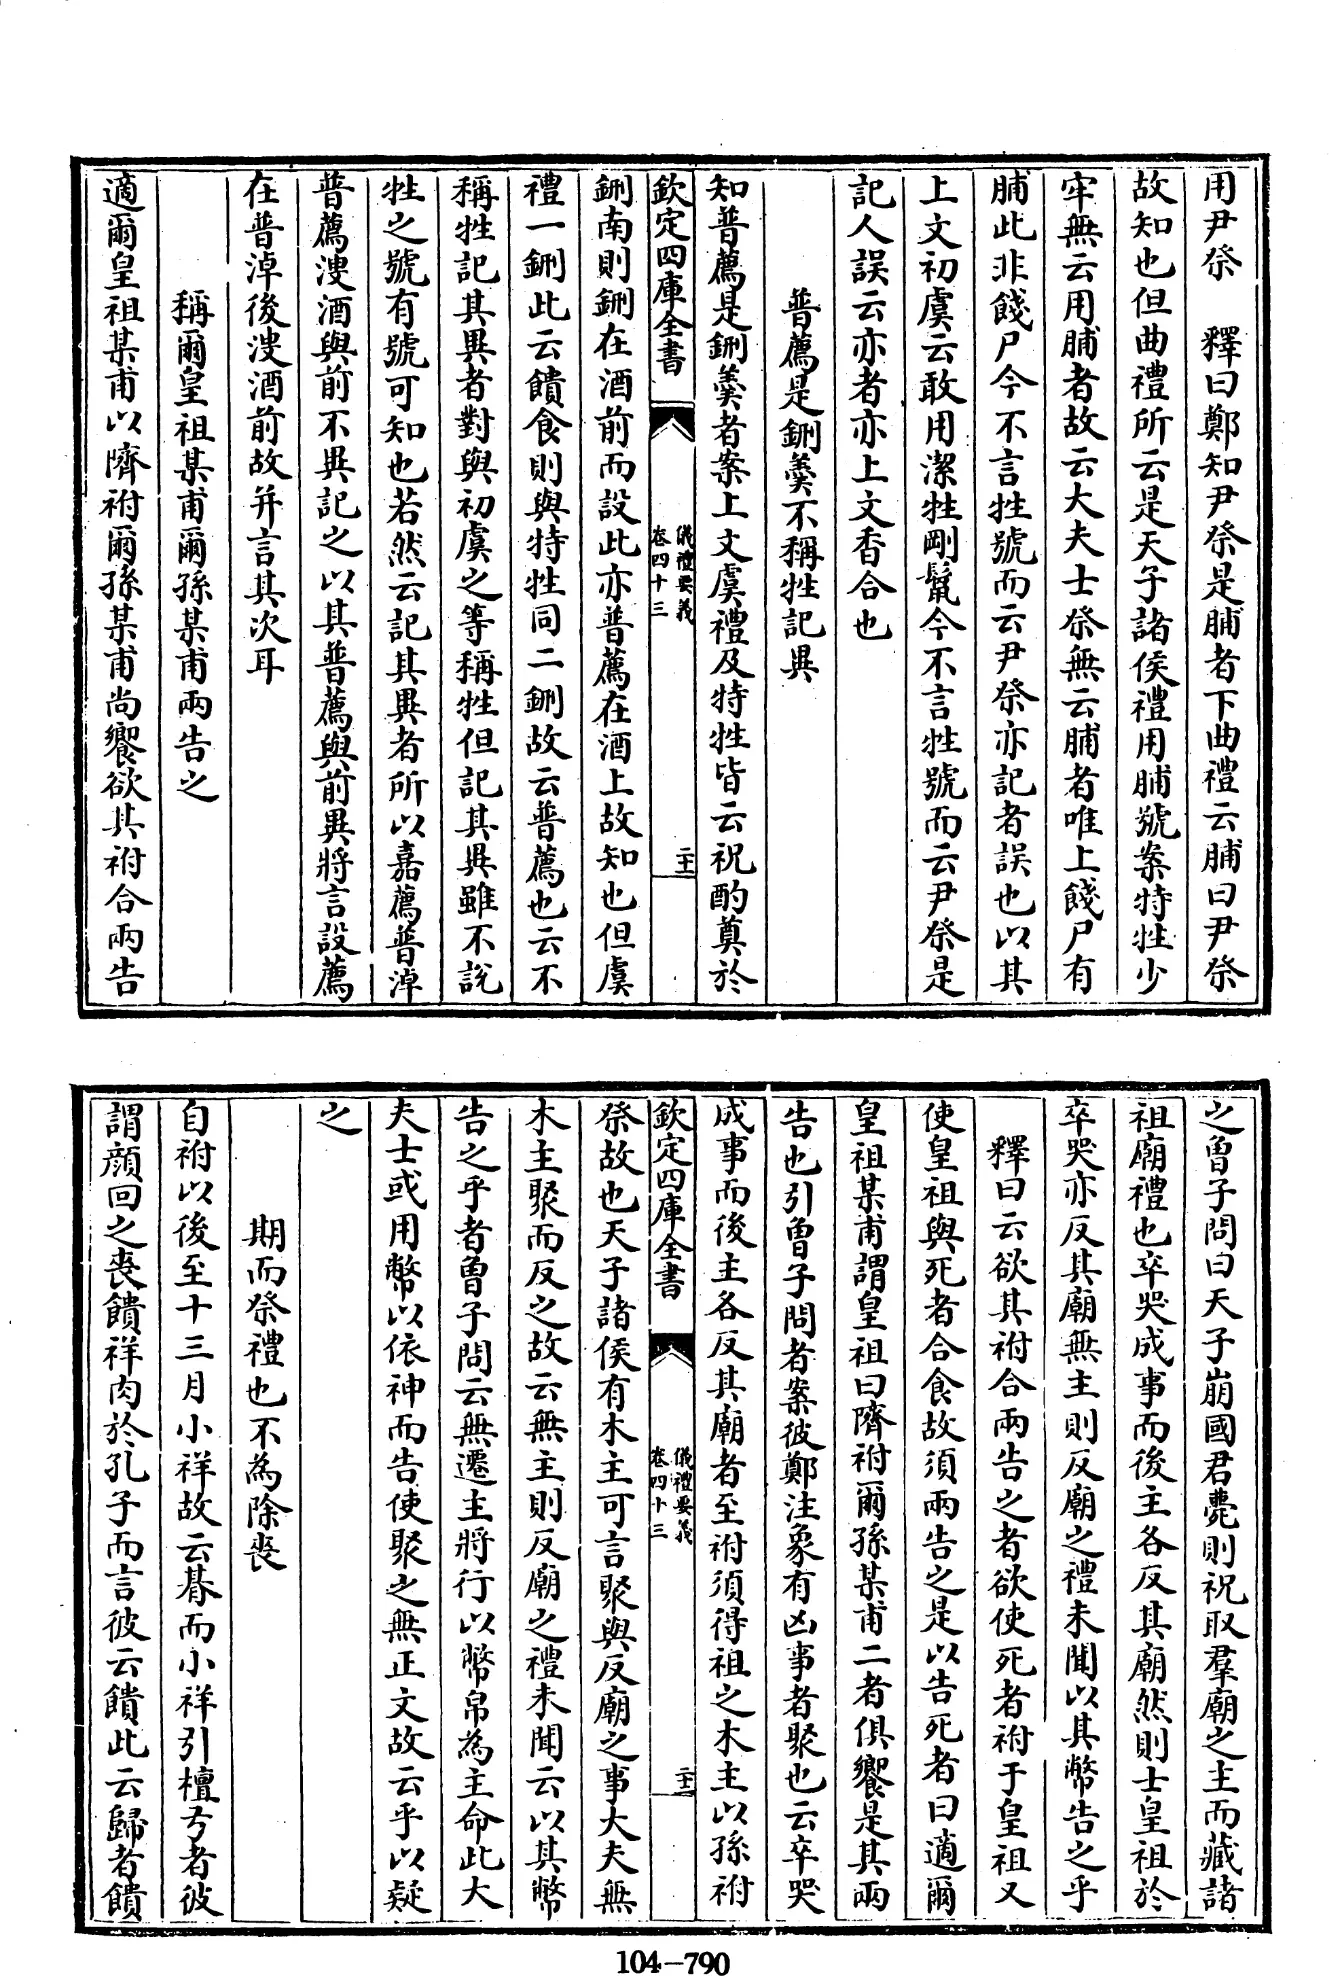 用尹祭　釋曰鄭知尹祭是脯者下曲禮云脯曰尹祭
故知也但曲禮所云是天子諸侯禮用脯號案特牲少
牢無云用脯者故云大夫士祭無云脯者唯上餞尸有
脯此非餞尸今不言牲號而云尹祭亦記者誤也以其
上文初虞云敢用潔牲剛鬣今不言牲號而云尹祭是
記人誤云亦者亦上文香合也
普薦是鉶羮不稱牲記異
知普薦是鉶羮者案上文虞禮及特牲皆云祝酌奠於
欽定四庫全書
儀禮要義
卷四十三
二十
鉶南則鉶在酒前而設此亦普薦在酒上故知也但虞
禮一鉶此云饋食則與特牲同二鉶故云普薦也云不
稱牲記其異者對與初虞之等稱牲但記其異雖不說
牲之號有號可知也若然云記其異者所以嘉薦普淖
普薦溲酒與前不異記之以其普薦與前異將言設薦
在普淖後溲酒前故并言其次耳
稱爾皇祖某甫爾孫某甫兩告之
適爾皇祖某甫以隮祔爾孫某甫尚饗欲其祔合兩告
之曾子問曰天子崩國君薨則祝取羣廟之主而藏諸
祖廟禮也卒哭成事而後主各反其廟然則士皇祖於
卒哭亦反其廟無主則反廟之禮未聞以其幣告之乎
釋曰云欲其祔合兩告之者欲使死者祔于皇祖又
使皇祖與死者合食故須兩告之是以告死者曰適爾
皇祖某甫謂皇祖曰隮祔爾孫某甫二者俱饗是其兩
告也引曾子問者案彼鄭注象有凶事者聚也云卒哭
成事而後主各反其廟者至祔須得祖之木主以孫祔
欽定四庫全書
儀禮要義
卷四十三
二十一
祭故也天子諸侯有木主可言聚與反廟之事大夫無
木主聚而反之故云無主則反廟之禮未聞云以其幣
告之乎者曾子問云無遷主將行以幣帛為主命此大
夫士或用幣以依神而告使聚之無正文故云乎以疑
之
期而祭禮也不為除喪
自祔以後至十三月小祥故云朞而小祥引檀弓者彼
謂顏回之喪饋祥肉於孔子而言彼云饋此云歸者饋
104-790